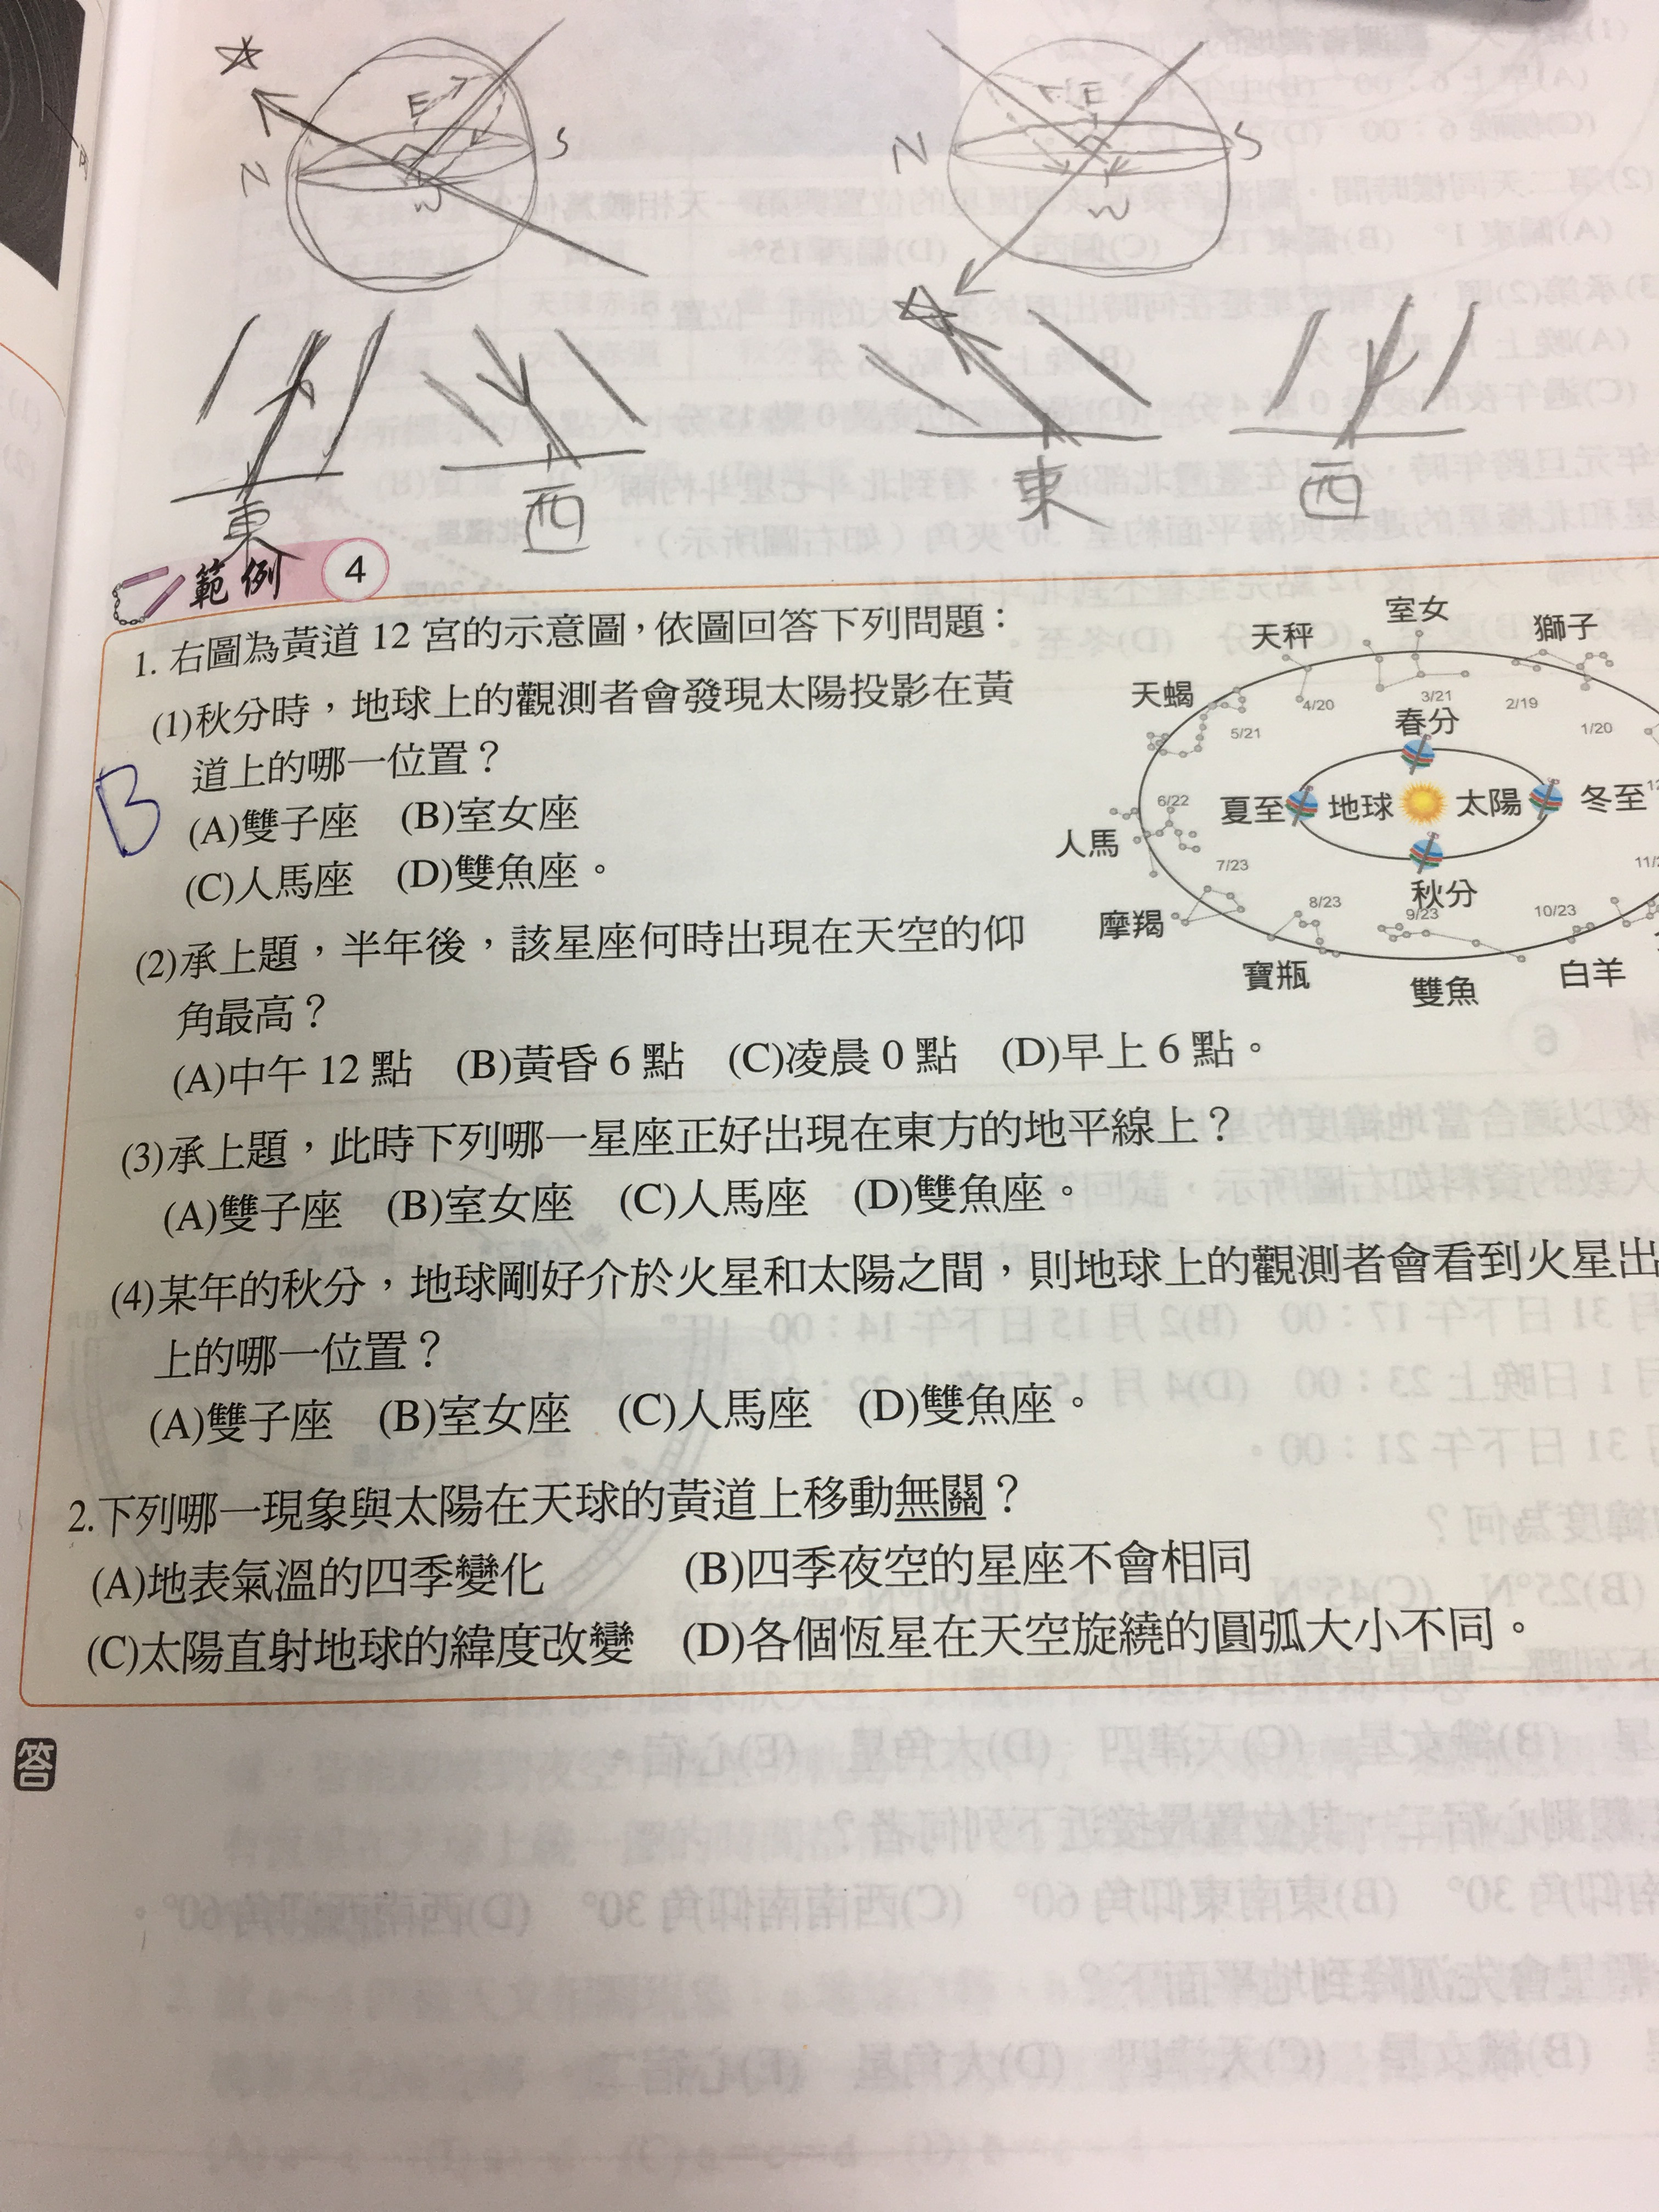 E
N
S
W
E
N
S
W
東
西
東
西
範例 4
1. 右圖為黃道 12 宮的示意圖，依圖回答下列問題：
(1)秋分時，地球上的觀測者會發現太陽投影在黃
道上的哪一位置？
B
(A)雙子座 (B)室女座
(C)人馬座 (D)雙魚座。
室女
獅子
天秤
天蠍
3/21
2/19
4/20
1/20
5/21
春分
6/22
夏至
地球
太陽
冬至
人馬
7/23
8/23
秋分
9/23
10/23
摩羯
寶瓶
雙魚
白羊
(2)承上題，半年後，該星座何時出現在天空的仰
角最高？
(A)中午 12 點 (B)黃昏 6 點 (C)凌晨 0 點 (D)早上 6 點。
(3)承上題，此時下列哪一星座正好出現在東方的地平線上？
(A)雙子座 (B)室女座 (C)人馬座 (D)雙魚座。
(4)某年的秋分，地球剛好介於火星和太陽之間，則地球上的觀測者會看到火星出
上的哪一位置？
(A)雙子座 (B)室女座 (C)人馬座 (D)雙魚座。
2.下列哪一現象與太陽在天球的黃道上移動無關？
(A)地表氣溫的四季變化 (B)四季夜空的星座不會相同
(C)太陽直射地球的緯度改變 (D)各個恆星在天空旋繞的圓弧大小不同。
答